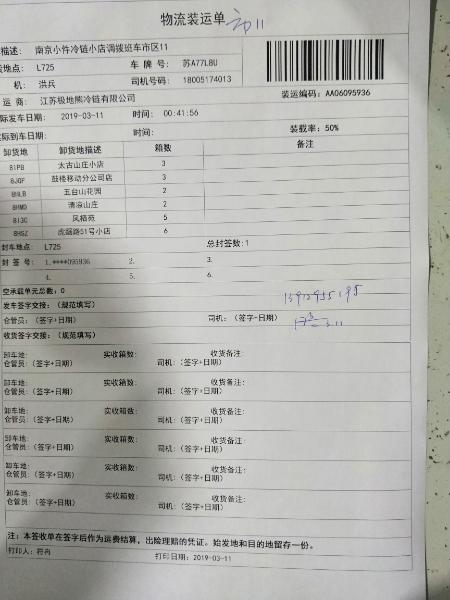 物流装运单
描述: 南京小件冷链小店调拨班车市区11
货地点: L725 车 牌 号: 苏A77L8U
机: 洪兵 司机号码: 18005174013
运 商: 江苏极地熊冷链有限公司 装运编码: AA06095936
际发车日期: 2019-03-11 时间: 00:41:56
实际到车日期: 时间: 装载率: 50%
卸货地 卸货地描述 箱数 备注
8IPB 太古山庄小店 3
8JGF 鼓楼移动分公司店 3
8HLB 五台山花园 2
8HMD 清凉山庄 2
8I3C 凤栖苑 5
8HSZ 虎踞路51号小店 6
封车地点: L725 总封签数:1
封 签 号: 1.****095936 2. 3.
4. 5. 6.
空承载单元总数: 0
发车签字交接: (规范填写)
仓管员: (签字+日期) 司机: (签字-日期)
收货签字交接: (规范填写)
卸车地: 实收箱数: 收货备注:
仓管员: (签字+日期) 司机: (签字+日期)
卸车地: 实收箱数: 收货备注:
仓管员: (签字+日期) 司机: (签字+日期)
卸车地: 实收箱数: 收货备注:
仓管员: (签字+日期) 司机: (签字+日期)
卸车地: 实收箱数: 收货备注:
仓管员: (签字+日期) 司机: (签字+日期)
卸车地: 实收箱数: 收货备注:
仓管员: (签字+日期) 司机: (签字+日期)
卸车地: 实收箱数: 收货备注:
仓管员: (签字+日期) 司机: (签字+日期)
注: 本签收单在签字后作为运费结算, 出险理赔的凭证。始发地和目的地留存一份。
打印人: 符冉 打印日期: 2019-03-11